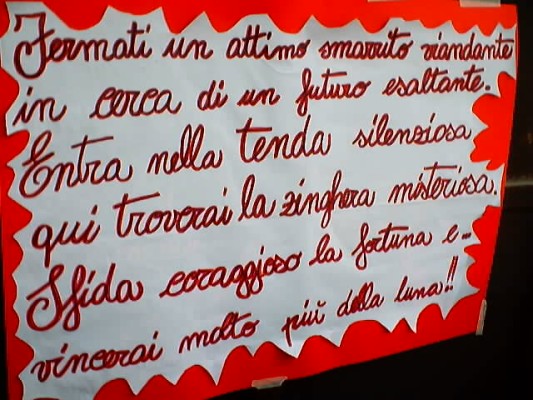 Fermati un attimo smarrito viandante
in cerca di un futuro esaltante.
Entra nella tenda silenziosa
qui troverai la zinghera misteriosa.
Sfida coraggioso la fortuna e..
vincerai molto più della luna!!